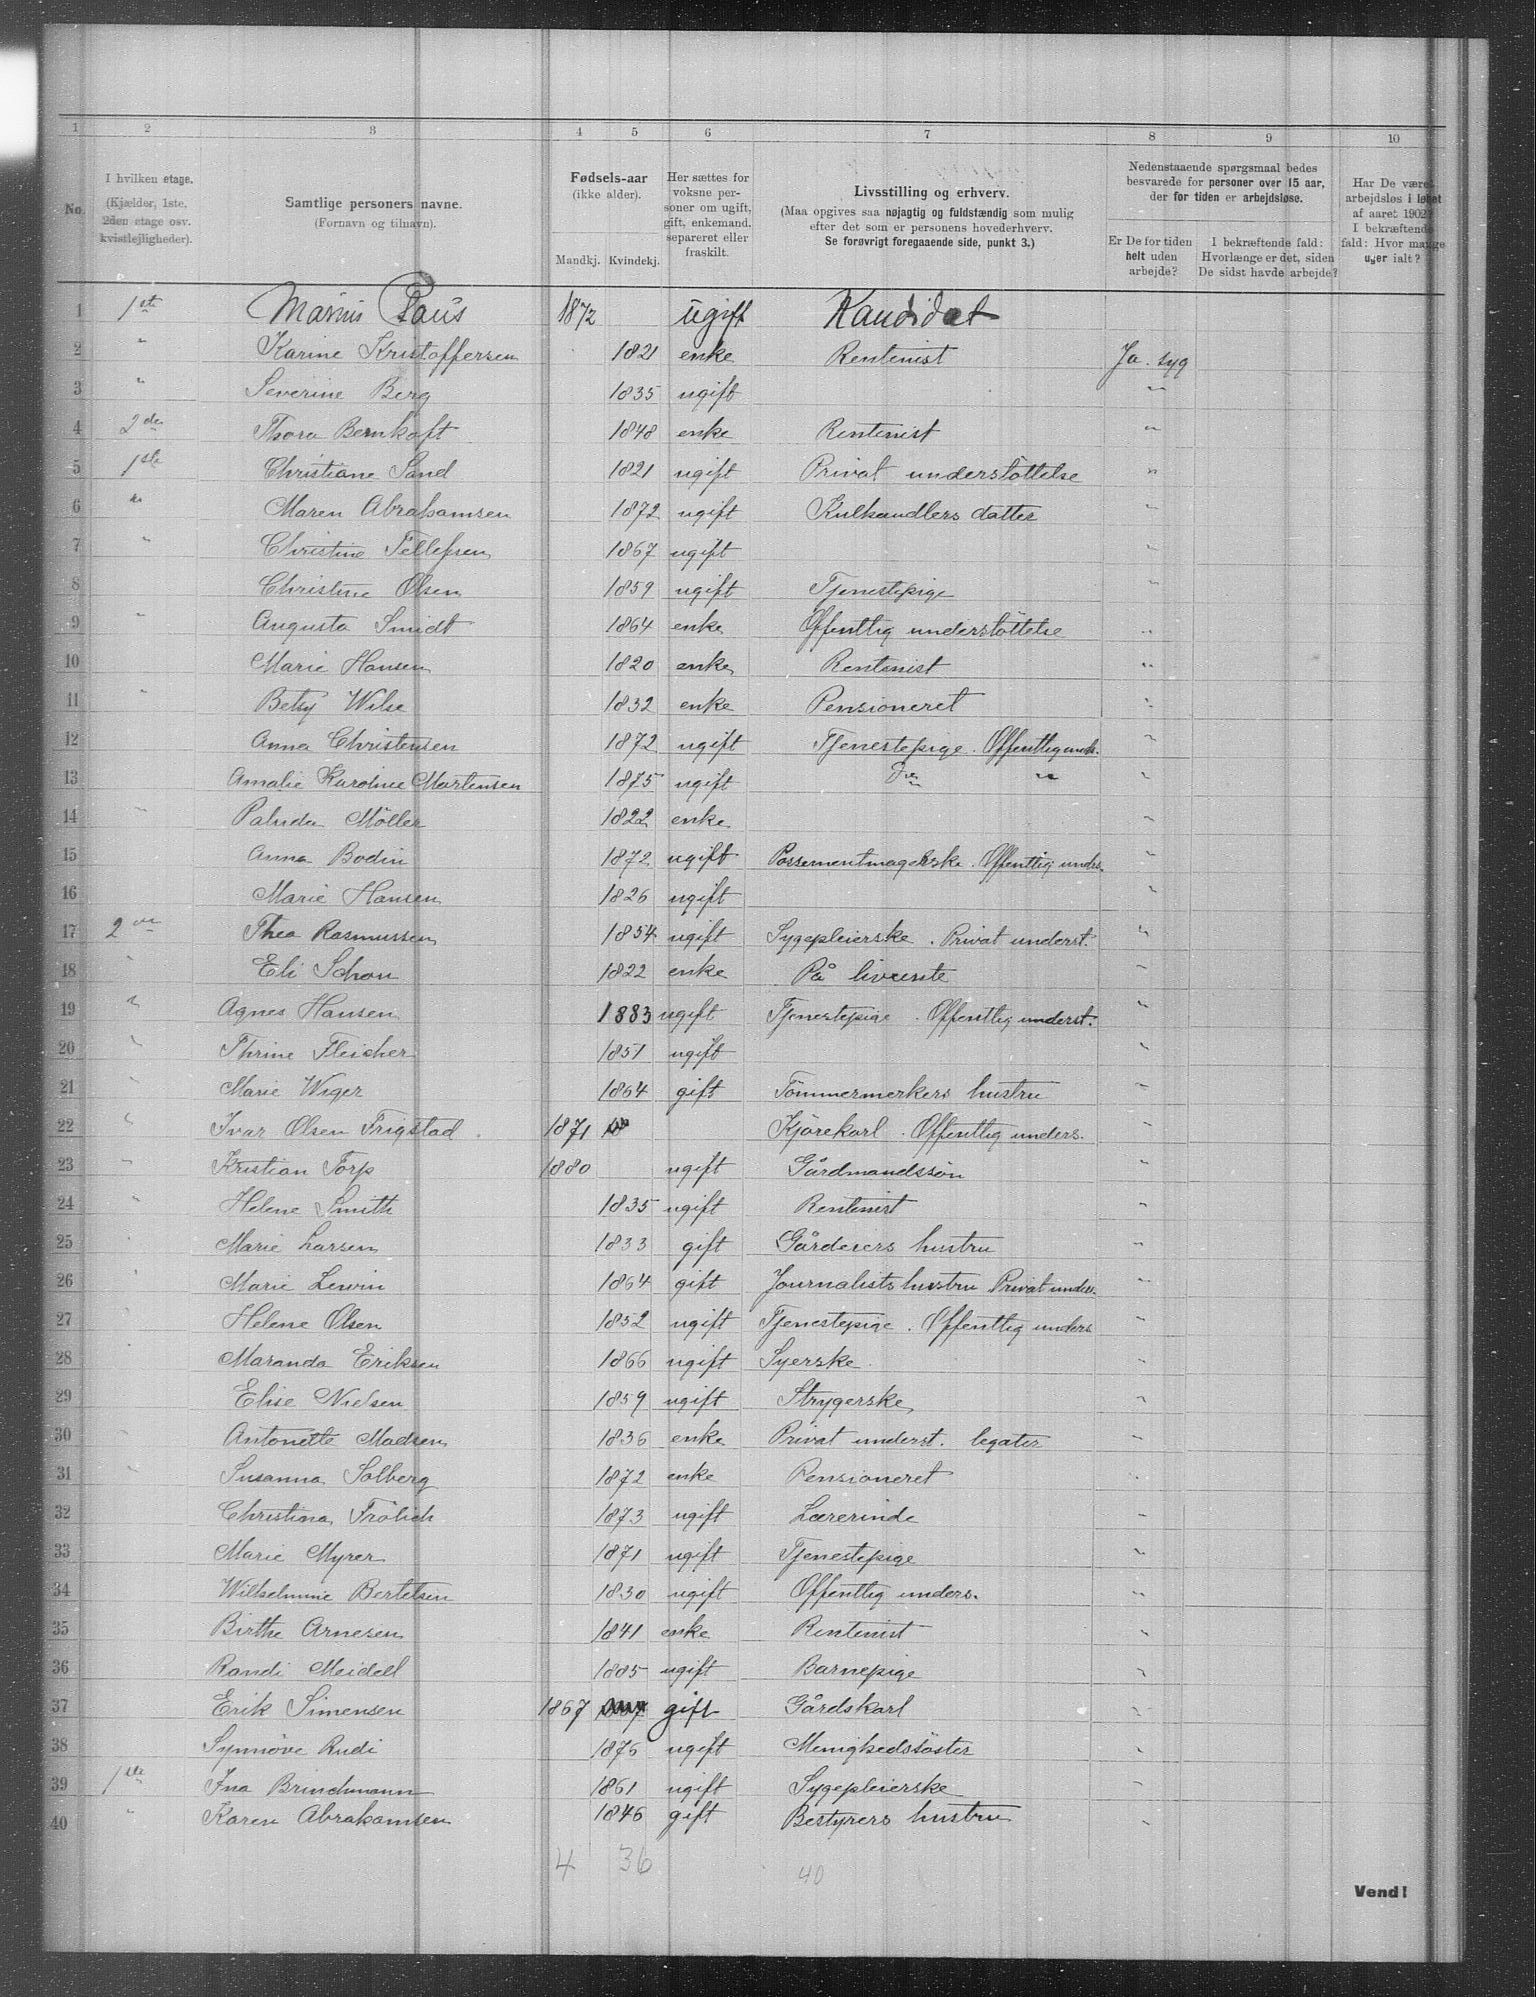 1 2 3 4 5 6 7 8 9 10
No.
I hvilken etage.
(Kjælder, 1ste,
2den etage osv.
kvistlejligheder).
Samtlige personers navne.
(Fornavn og tilnavn).
Fødsels-aar
(ikke alder).
Mandkj. Kvindekj.
Her sættes for
voksne per-
soner om ugift,
gift, enkemand.
separeret eller
fraskilt.
Livsstilling og erhverv.
(Maa opgives saa nøjagtig og fuldstændig som mulig
efter det som er personens hovederhverv.
Se forøvrigt foregaaende side, punkt 3.)
Nedenstaaende spørgsmaal bedes
besvarede for personer over 15 aar,
der for tiden er arbejdsløse.
Er De for tiden
helt uden
arbejde?
I bekræftende fald:
Hvorlænge er det, siden
De sidst havde arbejde?
Har De været
arbejdsløs i løbet
af aaret 1902?
I bekræftende
fald: Hvor mange
uger ialt?
1 1ste Marius Paus 1872 ugift Kandidat
2 " Karine Kristoffersen 1821 enke Rentenist Ja. syg
3 " Severine Berg 1835 ugift "
4 2den Thora Bernhoft 1848 enke Rentenist "
5 1ste Christiane Sand 1821 ugift Privat understöttelse "
6 " Maren Abrahamsen 1872 ugift Kulhandlers datter "
7 " Christine Tellefsen 1867 ugift "
8 Christine Olsen 1859 ugift Tjenestepige "
9 " Augusta Smidt 1864 enke Offentlig understöttelse "
10 Marie Hansen 1820 enke Rentenist "
11 " Betsy Wilse 1832 enke Pensioneret "
12 Anna Christensen 1872 ugift Tjenestepige. Offentlig unds. "
13 Amalie Karoline Martensen 1875 ugift Do " "
14 " Paluda Möller 1822 enke "
15 Anna Bodin 1872 ugift Possementmagerske. Offentlig unds. "
16 Marie Hansen 1826 ugift "
17 2den Thea Rasmussen 1854 ugift Sygepleierske. Privat underst. "
18 " Eli Schou 1822 enke På livrente "
19 " Agnes Hansen 1883 ugift Tjenestepige. Offentlig underst. "
20 " Thrine Fleicher 1851 ugift "
21 " Marie Wiger 1864 gift Tömmermerkers hustru "
22 " Ivar Olsen Frigstad. 1871 Kjörekarl. Offentlig unders. "
23 " Kristian Torp 1880 ugift Gårdmandssön "
24 " Helene Smith 1835 ugift Rentenist "
25 " Marie Larsen 1833 gift Gårdeiers hustru "
26 " Marie Lewin 1864 gift Journalists hustru Privat unders. "
27 " Helene Olsen 1852 ugift Tjenestepige. Offentlig unders "
28 " Maranda Eriksen 1866 ugift Syerske. "
29 " Elise Nielsen 1859 ugift Strygerske "
30 " Antonette Madsen 1836 enke Privat underst. legater "
31 " Susanna Solberg 1872 enke Pensioneret "
32 Christina Frölich 1873 ugift Lærerinde "
33 Marie Myrer 1871 ugift Tjenestepige "
34 Wilhelmine Bertelsen 1830 ugift Offentlig unders. "
35 Birthe Arnesen 1841 enke Rentenist "
36 Randi Meidell 1885 ugift Barnepige "
37 Erik Simensen 1867 gift Gårdskarl "
38 Synnöve Rudi 1876 ugift Menighedssöster "
39 1ste Ina Brinchmann 1861 ugift Sygepleierske "
40 " Karen Abrahamsen 1846 gift Bestyrers hustru "
4 36 40
Vend!